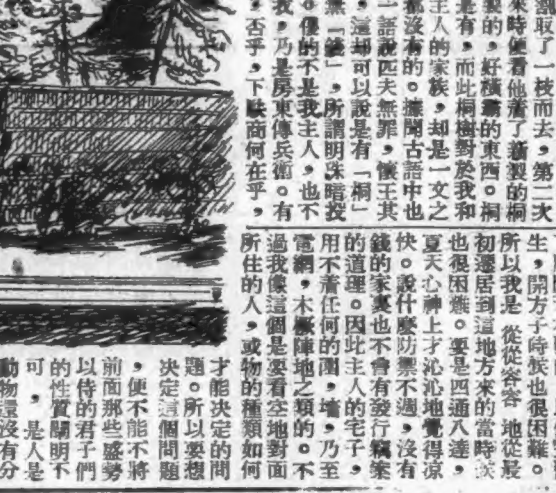 瀏取了一枝而去，第二天
來時便看他着了新製的桐
製的，好橫霸的東西。桐
是有，而此桐樹對於我和
主人的家族，却是一文之
都沒有的。據聞古語中也
一語說匹夫無罪，懷玉其
，這却可以說是有「桐」
無「錢」，所謂明珠暗投
。傻的不是我主人，也不
我，乃是房東傳兵衛。有
，否乎，下駄商何在乎，
生，開方子時候也很困難。
所以我是 從從容容 地從最
初遷居到這地方來的當時
也很困難。要是四通八達，
夏天心神上才沁沁地覺得涼
快。說什麼防禦不週，沒有
錢的家裏也不會有發行竊案
的道理。因此主人的宅子，
用不着任何的圍，墻，乃至
電網，木椒陣地之類的。不
過我像這個是要看空地對面
所住的人，或物的種類如何
才能決定的問
題。所以要想
決定這個問題
，便不能不將
前面那些盛勢
以侍的君子們
的性質闡明不
可，是人是
動物還沒有分